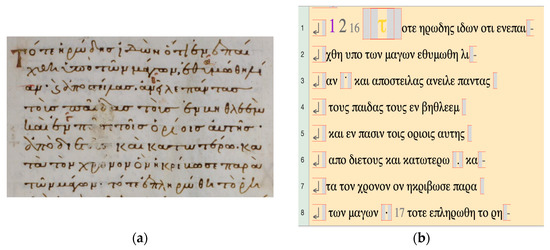 τότε ἡρώδης ἰδὼν ὅτι ἐνεπαί
χθη ὑπὸ τῶν μάγων, ἐθυμώθη λί
αν· καὶ ἀποστείλας ἀνεῖλε πάντας
τοὺς παῖδας τοὺς ἐν βηθλεὲμ
καὶ ἐν πᾶσι τοῖς ὁρίοις αὐτῆς·
ἀπὸ διετοῦς καὶ κατωτέρω· κα
τὰ τὸν χρόνον ὃν ἠκρίβωσε παρὰ
τῶν μάγων· τότε ἐπληρώθη τὸ ρη
(a)
1 ↲ 1 2 16 τοτε ηρωδης ιδων οτι ενεπαι-
2 ↲ χθη υπο των μαγων εθυμωθη λι-
3 ↲ αν · και αποστειλας ανειλε παντας
4 ↲ τους παιδας τους εν βηθλεεμ
5 ↲ και εν πασιν τοις οριοις αυτης
6 ↲ απο διετους και κατωτερω . κα-
7 ↲ τα τον χρονον ον ηκριβωσε παρα
8 ↲ των μαγων · 17 τοτε επληρωθη το ρη-
(b)